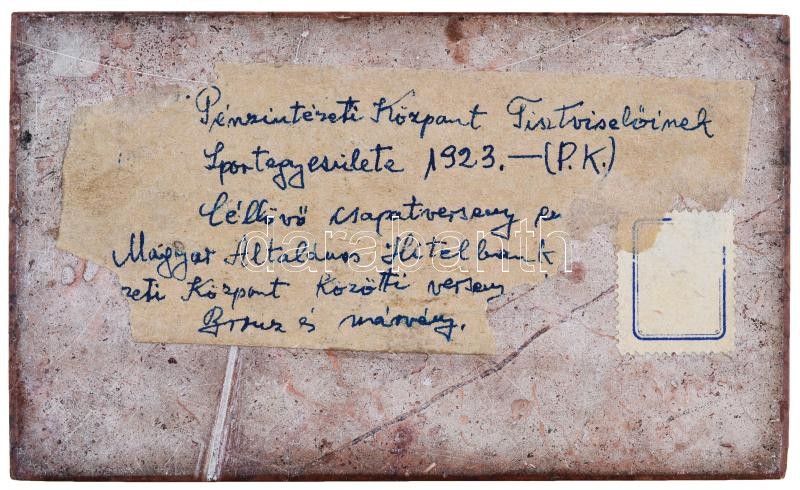 Pénzintézeti Központ Tisztviselőinek
Sportegyesülete 1923.—(P.K.)
Céllövő csapatverseny
Magyar Általános Hitelbank
zeti Központ közötti verseny
Bronz és márvány.
darabanth